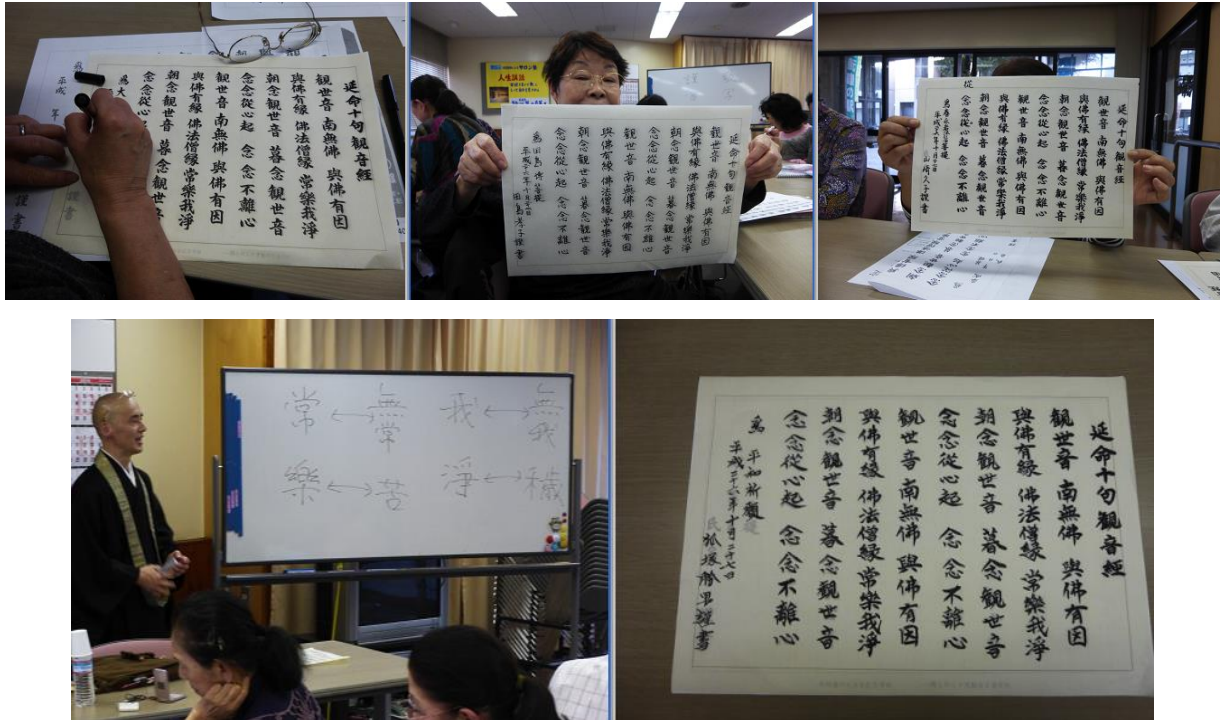 延命十句観音経
観世音 南無佛 與佛有因
與佛有縁 佛法僧縁 常樂我淨
朝念観世音 暮念観世音
念念從心起 念念不離心
観世音 南無佛 與佛有因
與佛有縁 佛法僧縁 常樂我淨
朝念観世音 暮念観世音
念念從心
為大
平成
謹書
延命十句観音経
観世音 南無佛 與佛有因
與佛有縁 佛法僧縁 常樂我淨
朝念観世音 暮念観世音
念念從心起 念念不離心
観世音 南無佛 與佛有因
與佛有縁 佛法僧縁 常樂我淨
朝念観世音 暮念観世音
念念從心起 念念不離心
平成二十六年十月二十七日
田島孝子謹書
延命十句観音経
観世音 南無佛 與佛有因
與佛有縁 佛法僧縁 常樂我淨
朝念観世音 暮念観世音
念念從心起 念念不離心
観世音 南無佛 與佛有因
與佛有縁 佛法僧縁 常樂我淨
朝念観世音 暮念観世音
念念從心起 念念不離心
平成二十六年十月二十七日
謹書
常↔無常 我↔無我
樂↔苦 淨↔穢
延命十句観音経
観世音 南無佛 與佛有因
與佛有縁 佛法僧縁 常樂我淨
朝念観世音 暮念観世音
念念從心起 念念不離心
観世音 南無佛 與佛有因
與佛有縁 佛法僧縁 常樂我淨
朝念観世音 暮念観世音
念念從心起 念念不離心
為 平和祈願
平成二十六年十月二十七日
謹書